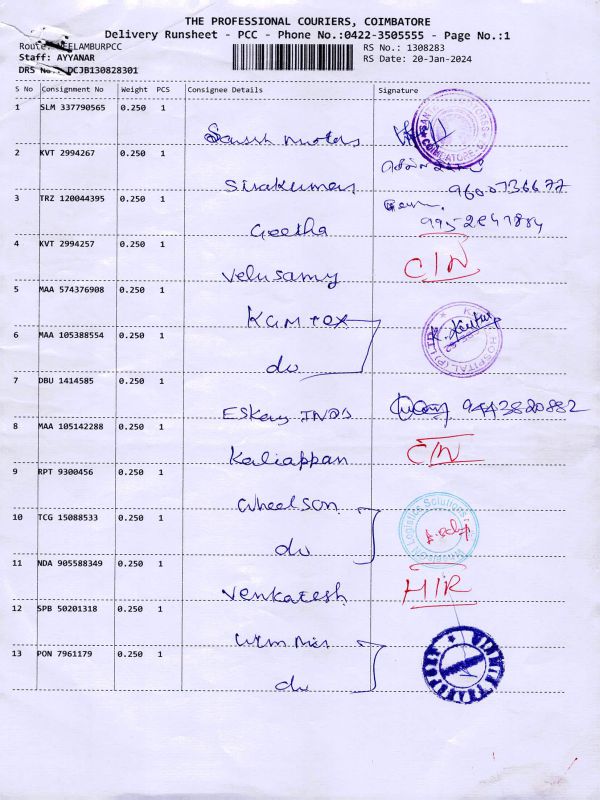 THE PROFESSIONAL COURIERS, COIMBATORE
Delivery Runsheet - PCC - Phone No.:0422-3505555 - Page No.:1
Route: NEELAMBURPCC RS No.: 1308283
Staff: AYYANAR RS Date: 20-Jan-2024
DRS No.: DCJB130828301
S No Consignment No Weight PCS Consignee Details Signature
1 SLM 337790565 0.250 1
motors
2 KVT 2994267 0.250 1
Sivakumar 9600736677
3 TRZ 120044395 0.250 1
Geetha
4 KVT 2994257 0.250 1
Velusamy C/N
5 MAA 574376908 0.250 1
6 MAA 105388554 0.250 1
do HOSPITAL (P) LTD
7 DBU 1414585 0.250 1
Eskay INDS 9443820882
8 MAA 105142288 0.250 1
Kaliappan C/N
9 RPT 9300456 0.250 1
Wheelson
10 TCG 15088533 0.250 1
do Logistics Solutions
11 NDA 905588349 0.250 1
Venkatesh H/R
12 SPB 50201318 0.250 1
13 PON 7961179 0.250 1
do